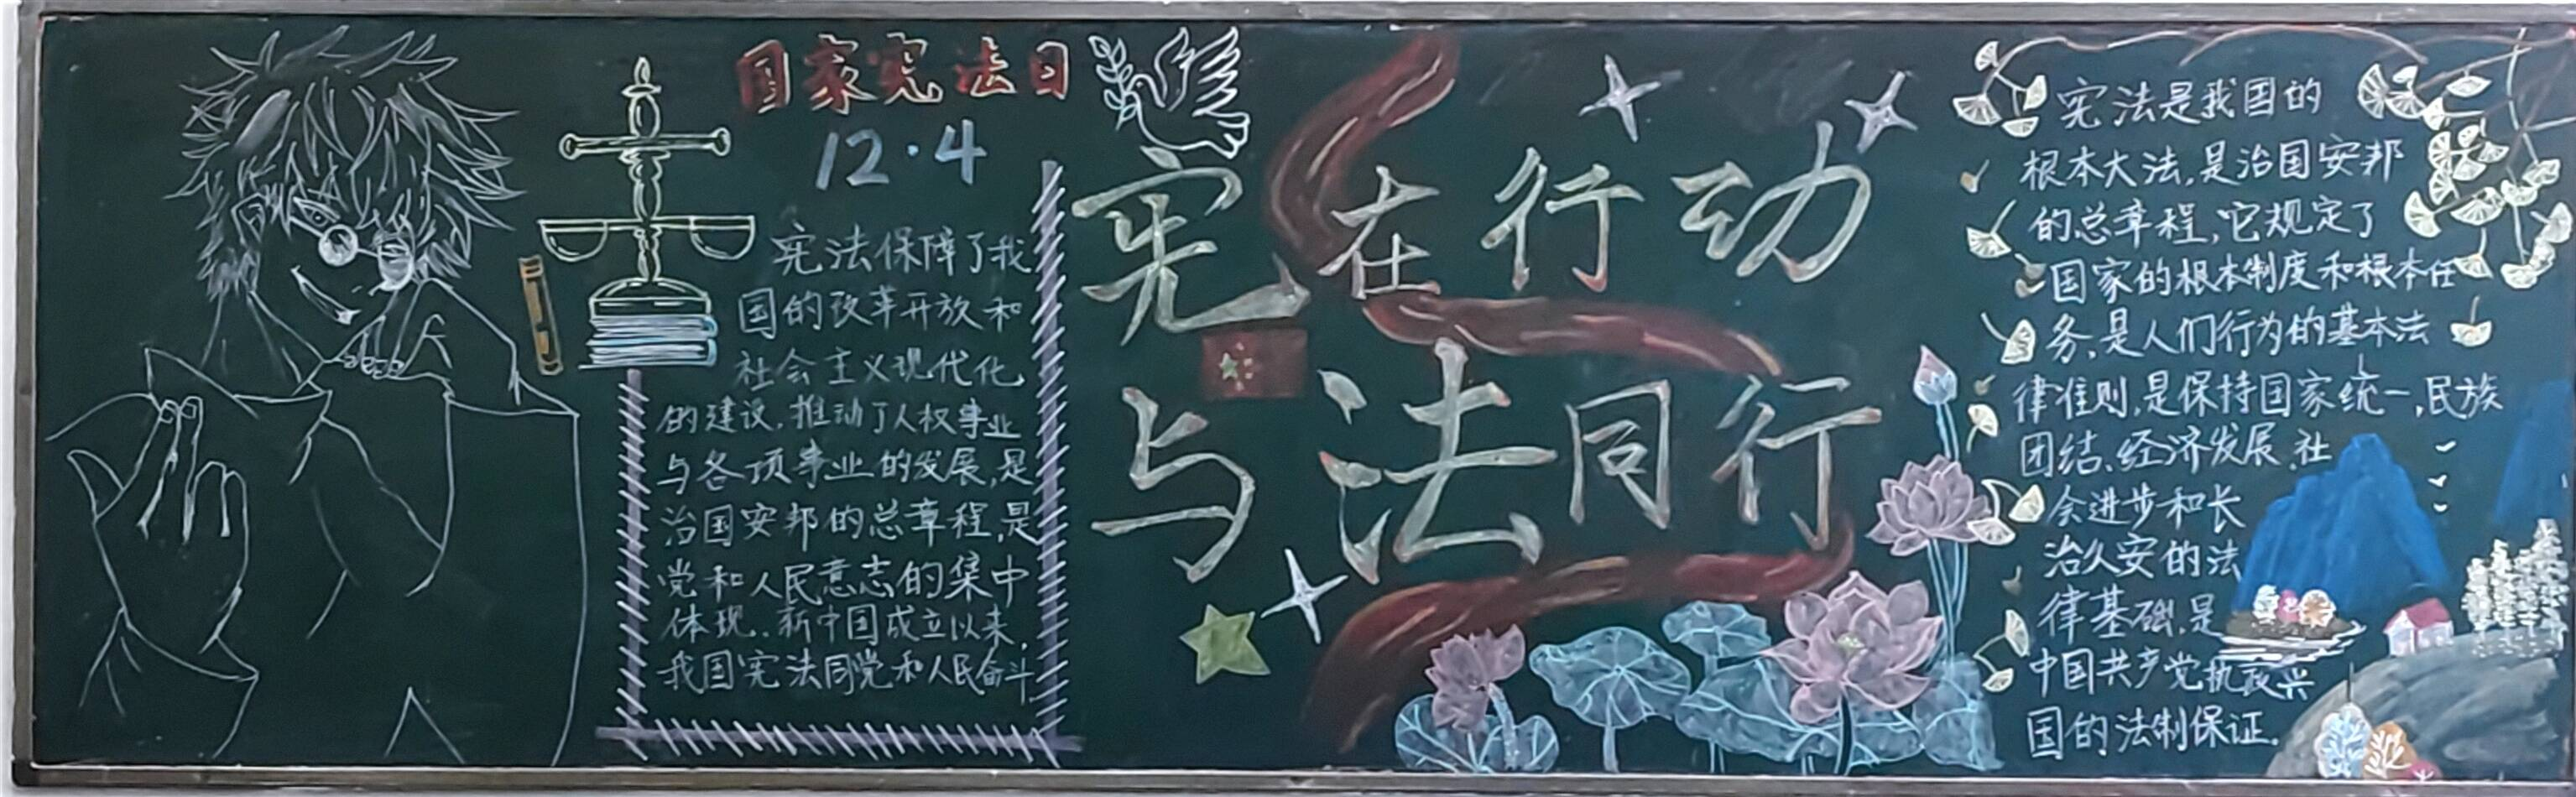 国家宪法日
12·4
宪法保障了我
国的改革开放和
社会主义现代化
的建设,推动了人权事业
与各项事业的发展,是
治国安邦的总章程,是
党和人民意志的集中
体现.新中国成立以来,
我国宪法同党和人民奋斗
宪在行动
与法同行
宪法是我国的
根本大法,是治国安邦
的总章程,它规定了
国家的根本制度和根本任
务,是人们行为的基本法
律准则,是保持国家统一,民族
团结、经济发展、社
会进步和长
治久安的法
律基础,是
中国共产党执政兴
国的法制保证.